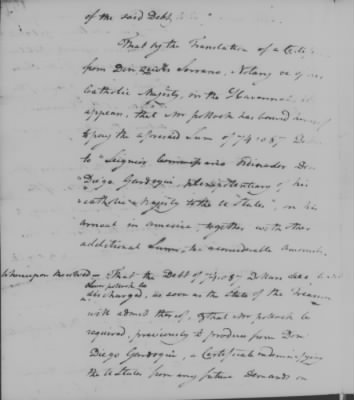 of the said Debt,
That by the Translation of a
from Don Serrano, Notary of
Catholic Majesty, in the Havanna, it
appears, that Mr pollock has bound himself
to pay the aforesaid Sum of 74.087
to "Seignior Don
"Diego Gardoqui, plenipotentiary of his
"catholic Majesty to the U States", on his
arrival in america — together with other
additional Sums, to a considerable Amount.
Whereupon Resolved — That the Debt of 74.087 Dollars
discharged, as soon as the State of the Treasury
will admit thereof, & that Mr pollock be
required, previously to produce from Don
Diego Gardoqui, a Certificate indemnifying
the U States from any future Demands on